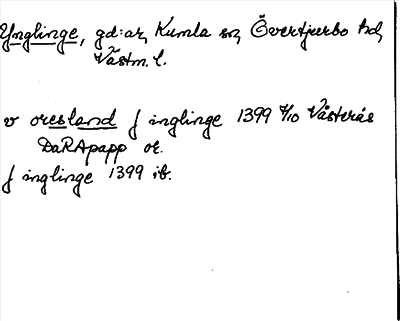 Ynglinge, gd:ar, Kumla sn, Övertjurbo hd,
Västm. l.
v oresland J inglinge 1399 4/10 Västerås
DaRApapp or.
J inglinge 1399 ib.